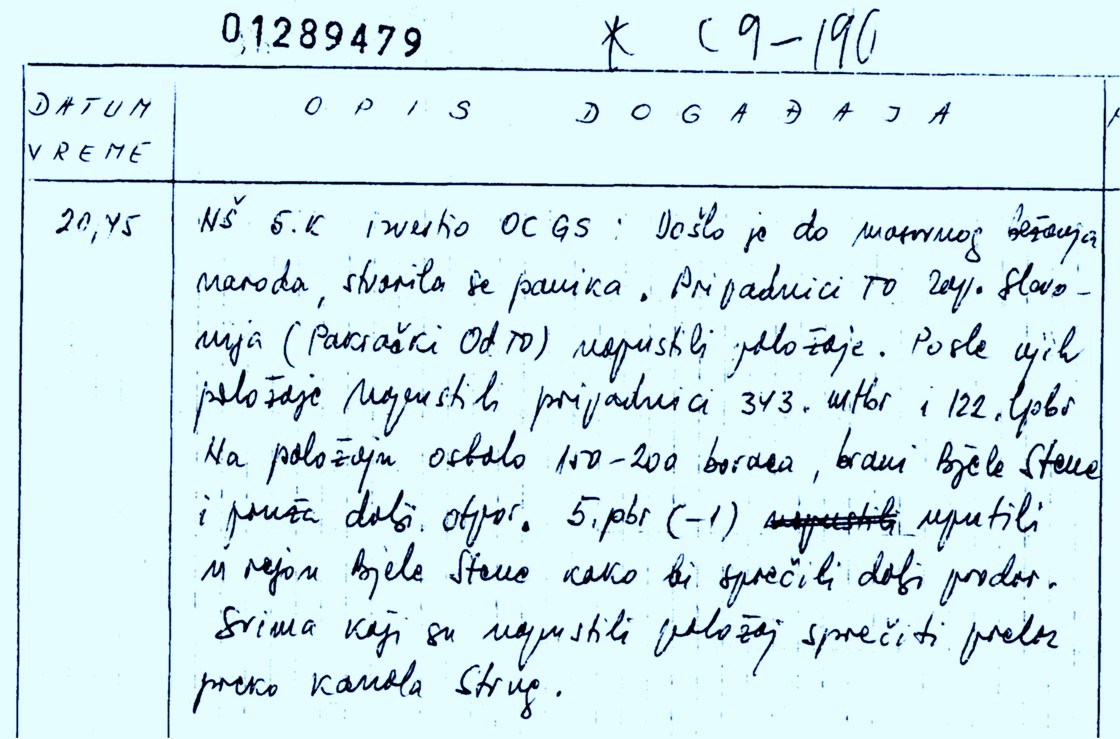 01289479 * C9-190
DATUM VREME
OPIS DOGAĐAJA
20,45
NŠ 5.K izvestio OC GS : Došlo je do masovnog bežanja
naroda, stvorila se panika. Pripadnici TO zap. Slavo-
nija (Pakrački Od TO) napustili položaje. Posle njih
položaje napustili pripadnici 343. mtbr i 122. lpbr
Na položaju ostalo 150-200 boraca, brani Bjele Stene
i pruža dalji otpor. 5. pbr (-1) uputili
u rejon Bjele Stene kako bi sprečili dalji prodor.
Svima koji su napustili položaj sprečiti prelaz
preko kanala Strug.